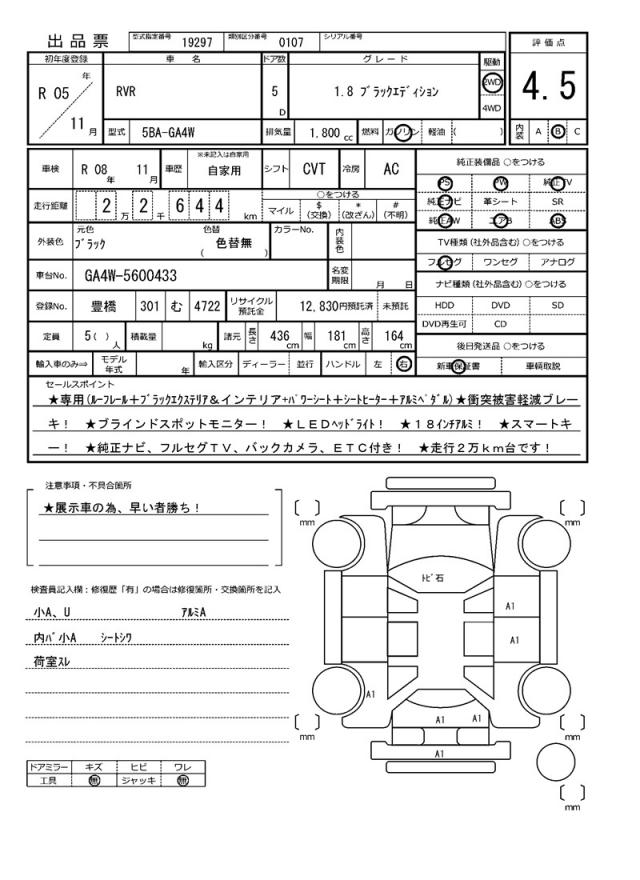 出品票 型式指定番号 19297 類別区分番号 0107 シリアル番号
評価点
4.5
内装 A B C
初年度登録 車名 ドア数 グレード 駆動
R 05 年 11 月
RVR 5 D 1.8 ブラックエディション 2WD
4WD
型式 5BA-GA4W 排気量 1.800 cc 燃料 ガソリン 軽油 ( )
車検 R 08 年 11 月 車歴 ※未記入は自家用 自家用 シフト CVT 冷房 AC
走行距離 2 万 2 千 6 4 4 km
○をつける
マイル $ (交換) * (改ざん) # (不明)
外装色 元色 ブラック 色替 ( 色替無 ) カラーNo. 内装色
車台No. GA4W-5600433 名変期限 月 日
登録No. 豊橋 301 む 4722 リサイクル預託金 12,830円預託済 未預託
定員 5( ) 人 積載量 kg 諸元 長さ 436 cm 幅 181 cm 高さ 164 cm
輸入車のみ⇒ モデル年式 年 輸入区分 ディーラー 並行 ハンドル 左 右
純正装備品 ○をつける
PS PW 純正TV
純正ナビ 革シート SR
純正AW エアB ABS
TV種類(社外品含む) ○をつける
フルセグ ワンセグ アナログ
ナビ種類(社外品含む) ○をつける
HDD DVD SD
DVD再生可 CD
後日発送品 ○をつける
新車保証書 車輌取説
セールスポイント
★専用(ルーフレール+ブラックエクステリア&インテリア+パワーシート+シートヒーター+アルミペダル)★衝突被害軽減ブレー
キ! ★ブラインドスポットモニター! ★LEDヘッドライト! ★18インチアルミ! ★スマートキ
ー! ★純正ナビ、フルセグTV、バックカメラ、ETC付き! ★走行2万km台です!
注意事項・不具合箇所
★展示車の為、早い者勝ち!
検査員記入欄:修復歴「有」の場合は修復箇所・交換箇所を記入
小A、U アルミA
内バ小A シートシワ
荷室スレ
ドアミラー キズ ヒビ ワレ
工具 無 ジャッキ 無
mm
mm
トビ石
A1
A1
A1
A1 A1
A1
mm
mm
mm